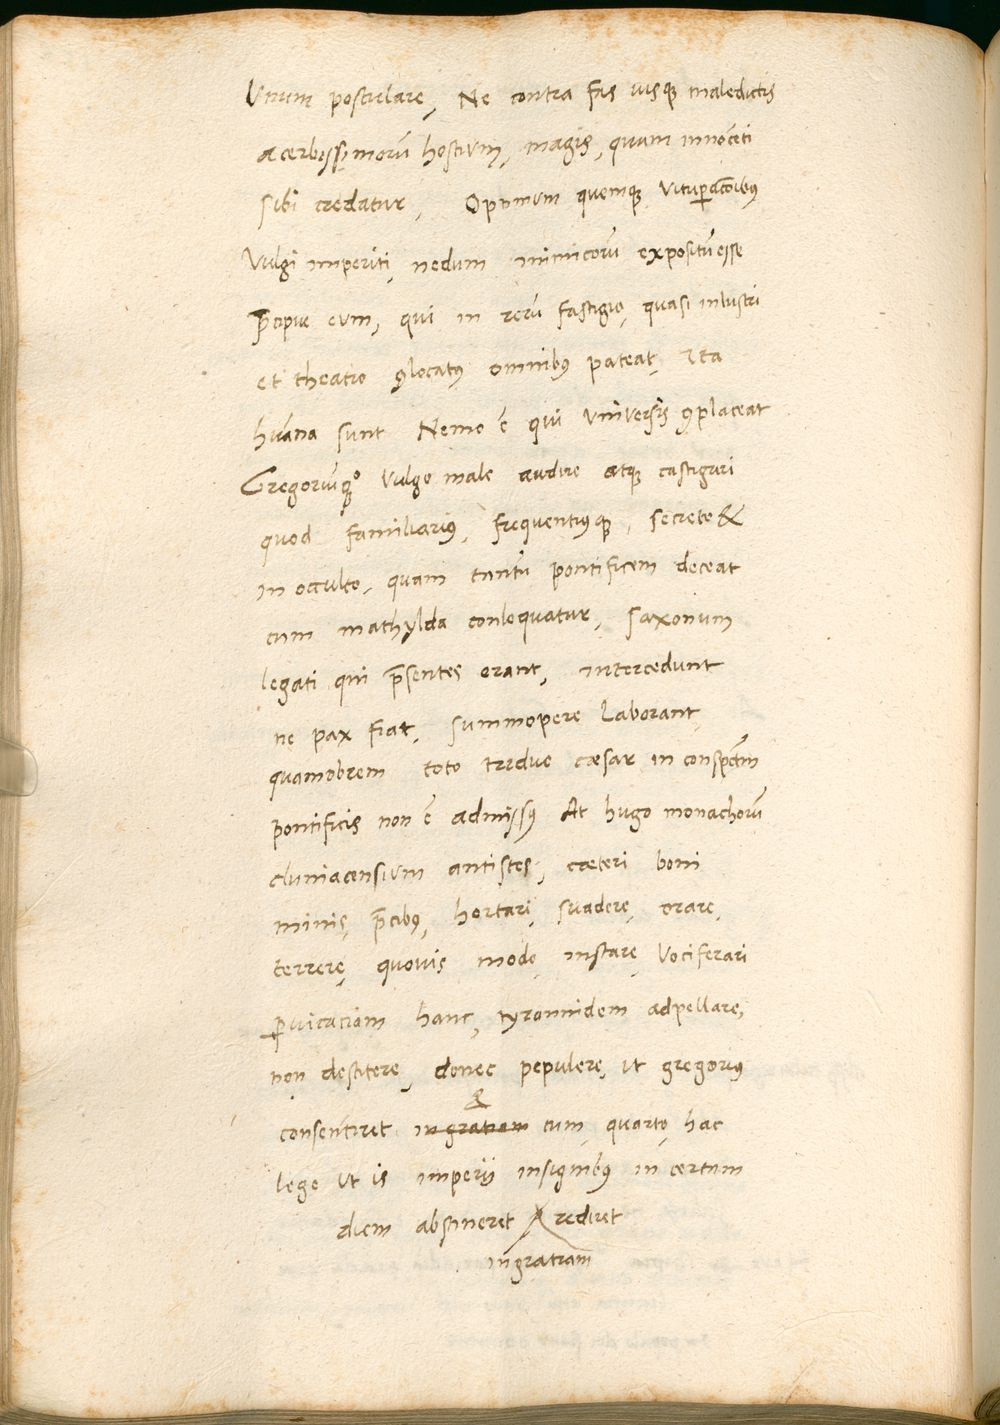 Vnum postulare, Ne contra fas iusq; maledictis
acerbissimorū hostium, magis, quam innocēti
sibi credatur, Optimum quemq; vituꝑatōibꝰ
Vulgi imperiti, nedum inimicorū expositū esse
p̄cipue eum, qui in rerū fastigio, quasi inlustri
et theatro ꝯlocatꝰ omnibꝰ pateat, Ita
hūana sunt Nemo ē qui vniversis ꝯplaceat
Gregoriūq; vulgo male audire atq; castigari
quod familiariꝰ, frequentiꝰq;, secreto &
in occulto, quam tantū pontificem deceat
cum mathylda conloquatur, saxonum
legati qui p̄sentes erant, intercedunt
ne pax fiat, summopere laborant
quamobrem toto triduo cæsar in conspctm
pontificis non ē admissꝰ At hugo monachorū
cluniacensium antistes, cæteri boni
minis, p̄cibꝰ, hortari, suadere, orare,
terrere, quovis modo instare, vociferari
ꝑuicaciam hanc, tyrannidem adpellare,
non destitere, donec pepulere, ut gregoriꝰ
&
consentiret in gratiam cum quarto, hac
lege ut is imperii insignibꝰ in certum
diem abstineret rediret
in gratiam